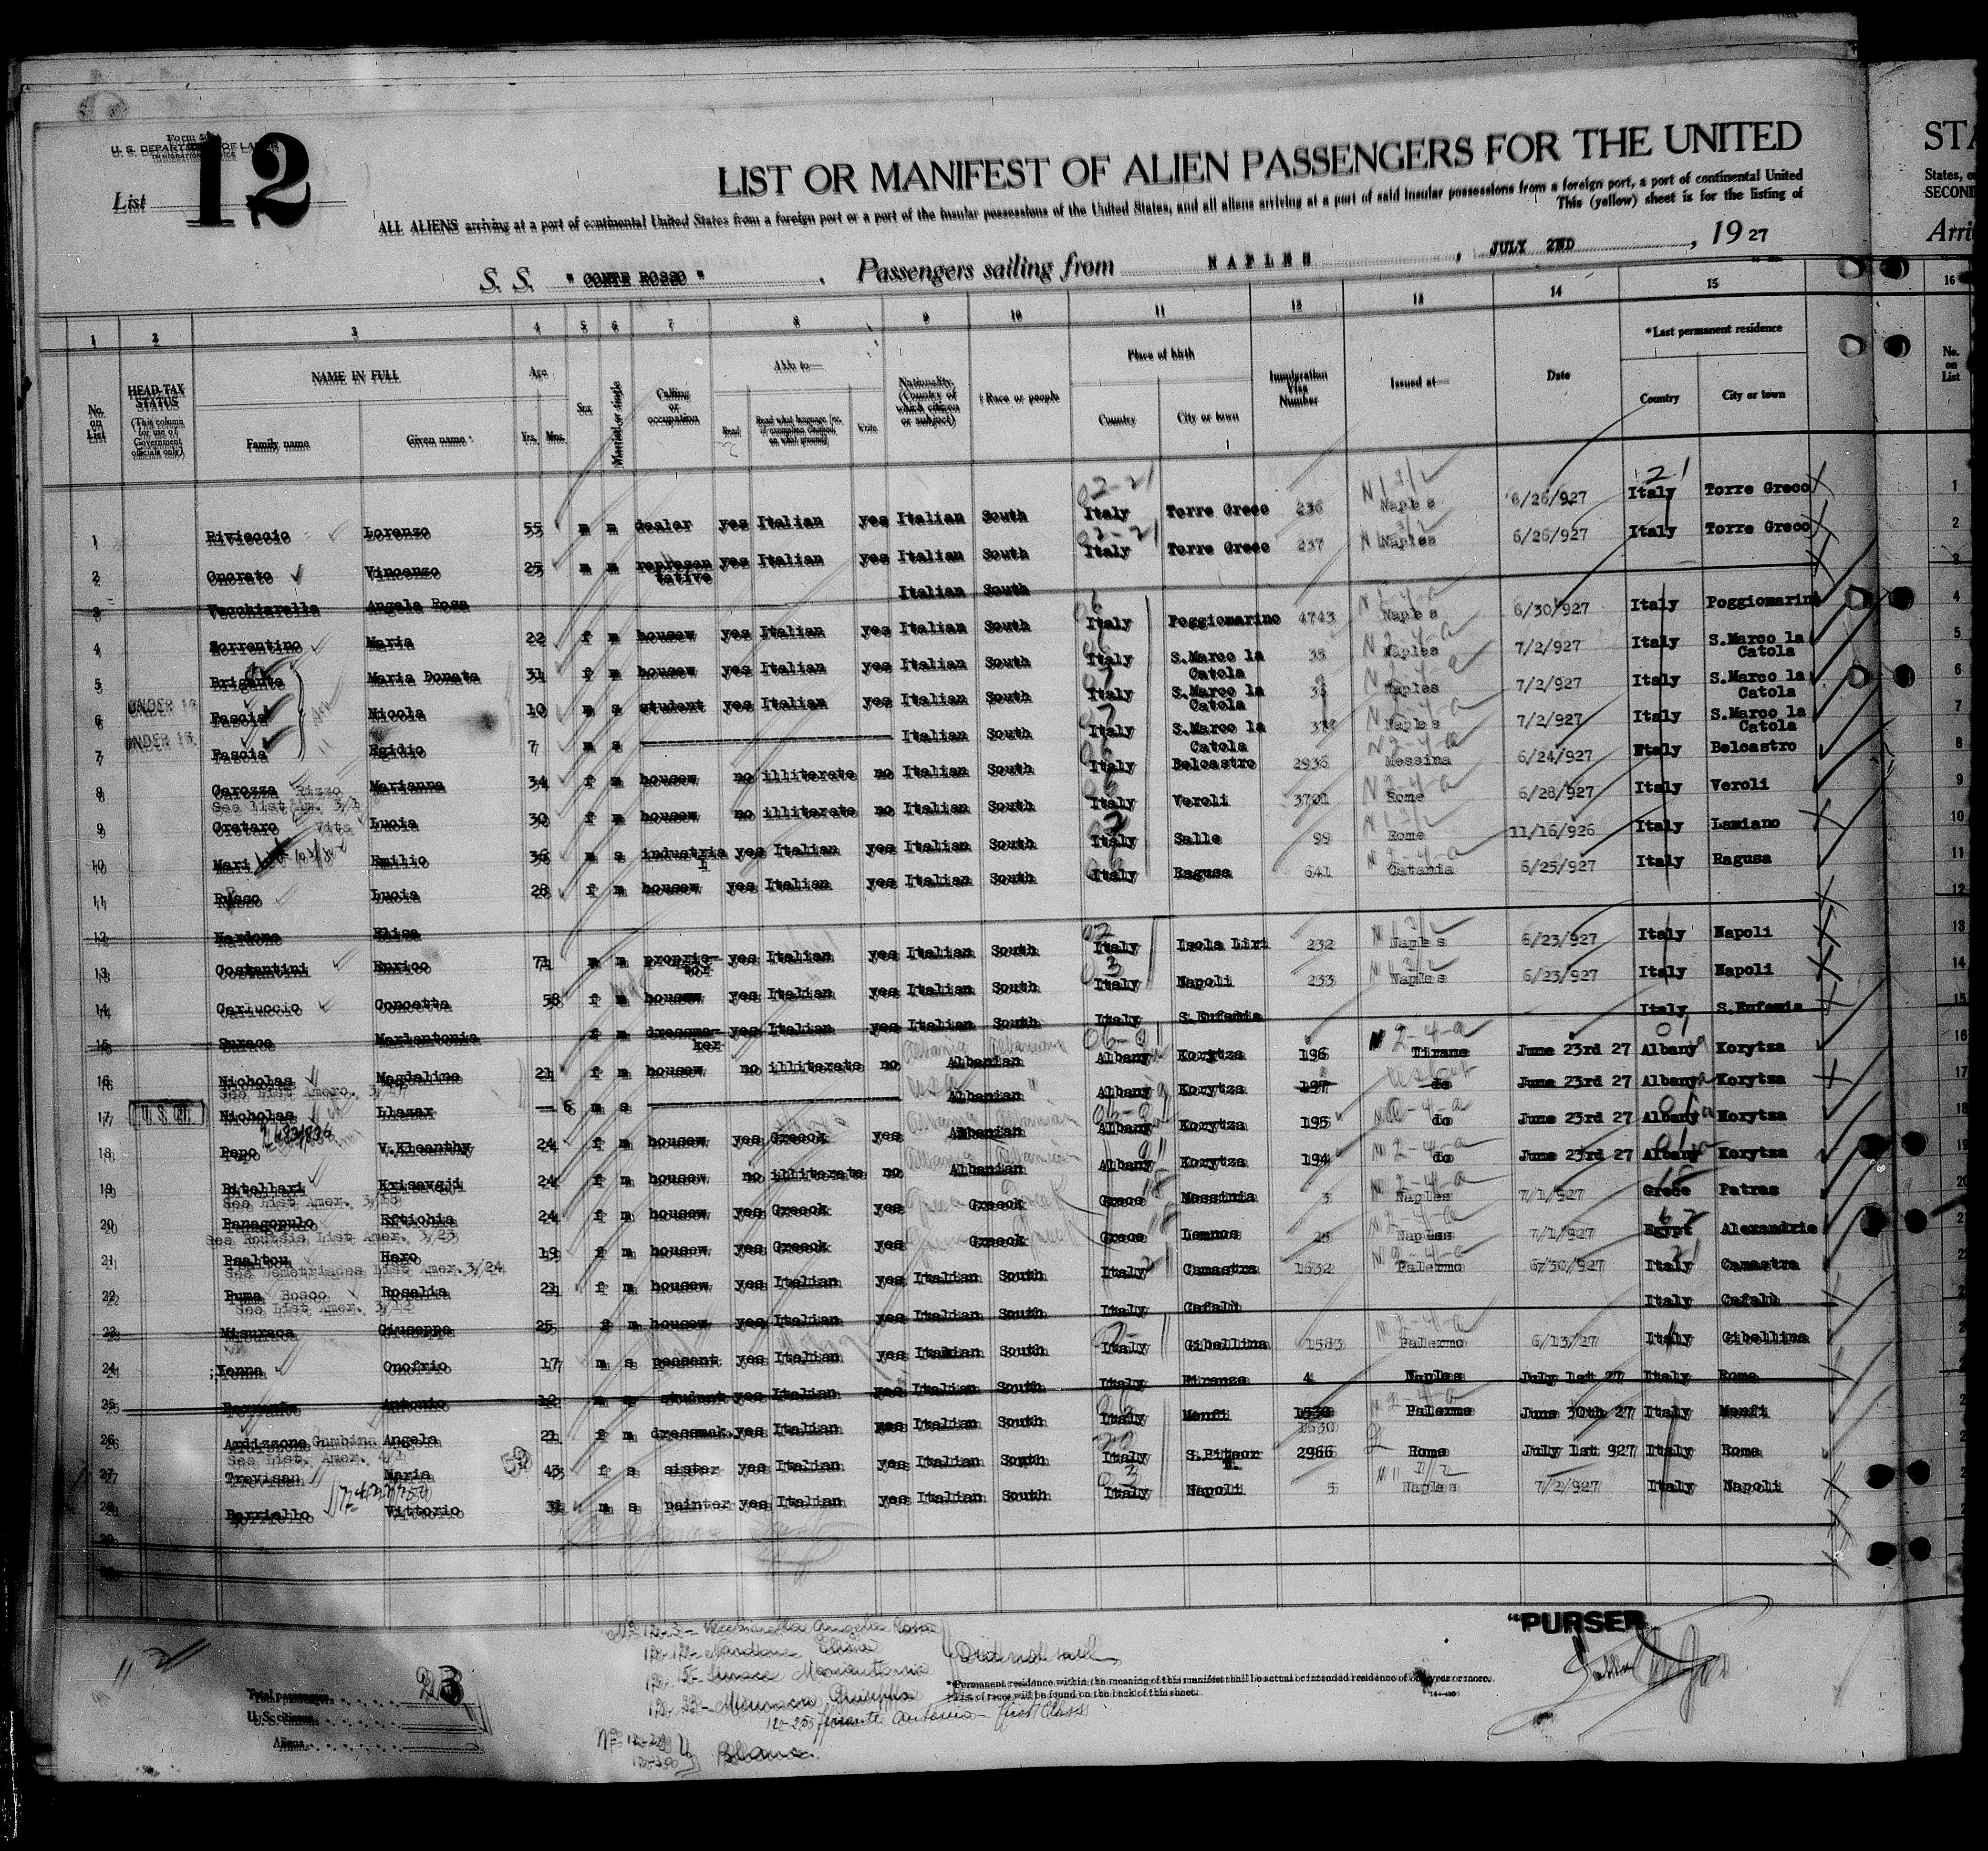 Form 500
U. S. DEPARTMENT OF LABOR
IMMIGRATION SERVICE
List 12
LIST OR MANIFEST OF ALIEN PASSENGERS FOR THE UNITED
STA
ALL ALIENS arriving at a port of continental United States from a foreign port or a port of the insular possessions of the United States, and all aliens arriving at a port of said insular possessions from a foreign port, a port of continental United
States, o
This (yellow) sheet is for the listing of
SECOND
S. S. "CONTE ROSSO", Passengers sailing from NAPLES, JULY 2ND, 1927
Arri
1 2 3 4 5 6 7 8 9 10 11 12 13 14 15 16
No. on List
HEAD-TAX STATUS (This column for use of Government officials only)
NAME IN FULL
Family name Given name
Age Yrs. Mos.
Sex
Married or single
Calling or occupation
Able to—
Read Read what language [or, if exemption claimed, on what ground] Write
Nationality. (Country of which citizen or subject)
†Race or people
Place of birth
Country City or town
Immigration Visa Number
Issued at—
Date
*Last permanent residence
Country City or town
No. on List
1 Rivieccio Lorenzo 55 m m dealer yes Italian yes Italian South Italy Torre Greco 236 Naples 6/26/927 Italy Torre Greco 1
2 Onorato Vincenzo 25 m m represen tative yes Italian yes Italian South Italy Torre Greco 237 Naples 6/26/927 Italy Torre Greco 2
3 Vecchiarella Angela Rosa Italian South 3
4 Sorrentino Maria 22 f m housew yes Italian yes Italian South Italy Poggiomarino 4743 Naples 6/30/927 Italy Poggiomarino 4
5 Brigante Maria Donata 31 f m housew yes Italian yes Italian South Italy S.Marco la Catola 35 Naples 7/2/927 Italy S.Marco la Catola 5
6 UNDER 16 Fascia Nicola 10 m s student yes Italian yes Italian South Italy S.Marco la Catola 35 Naples 7/2/927 Italy S.Marco la Catola 6
7 UNDER 16 Fascia Egidio 7 m s Italian South Italy S.Marco la Catola 37 Naples 7/2/927 Italy S.Marco la Catola 7
8 Carozza Rizzo Marianna 34 f m housew no illiterate no Italian South Italy Belcastro 2936 Messina 6/24/927 Italy Belcastro 8
See List Am. 3/1
9 Cretaro Vita Lucia 30 f m housew no illiterate no Italian South Italy Veroli 3701 Rome 6/28/927 Italy Veroli 9
10 Mari Emilio 36 m s industria l yes Italian yes Italian South Italy Salle 99 Rome 11/16/926 Italy Lamiano 10
11 Russo Lucia 28 f m housew yes Italian yes Italian South Italy Ragusa 641 Catania 6/25/927 Italy Ragusa 11
12 Nardone Elisa 12
13 Costantini Enrico 71 m m proprie- tor yes Italian yes Italian South Italy Isola Liri 232 Naples 6/23/927 Italy Napoli 13
14 Carluccio Concetta 58 f m housew yes Italian yes Italian South Italy Napoli 233 Naples 6/23/927 Italy Napoli 14
15 Surace Mariantonia f m dressma- ker yes Italian yes Italian South Italy S.Eufemia Italy S.Eufemia 15
16 Nicholas Magdaline 21 f m housew no illiterate no Albanian Albany Korytza 196 Tirana June 23rd 27 Albany Korytza 16
See List Amero. 3/17
17 U. S. CIT. Nicholas Llazar — 6 m s Albanian Albany Korytza 197 do June 23rd 27 Albany Korytza 17
18 Pepo V.Kleanthy 24 f m housew yes Greeck yes Albanian Albany Korytza 195 do June 23rd 27 Albany Korytza 18
19 Bitellari Krisavgji 24 f m housew no illiterate no Albanian Albany Korytza 194 do June 23rd 27 Albany Korytza 19
See List Amer. 3/18
20 Panagopulo Eftichia 24 f m housew yes Greeck yes Greeck Grece Messinia 3 Naples 7/1/927 Grece Patras 20
See Routsis List Amer. 3/23
21 Psaltou Haro 19 f m housew yes Greeck yes Greeck Grece Lemnos 25 Naples 7/1/927 Egypt Alexandrie 21
See Demetriades List Amer.3/24
22 Puma Bosco Rosalia 21 f m housew yes Italian yes Italian South Italy Camastra 1632 Palermo 6/30/927 Italy Camastra
See List Amer. 3/12
23 Misuraca Giuseppa 25 f m housew yes Italian yes Italian South Italy Cefalù Italy Cefalù
24 Yenna Onofrio 17 m s peasant yes Italian yes Italian South Italy Gibellina 1583 Palermo 6/13/27 Italy Gibellina
25 Ferrante Antonio 12 m s student yes Italian yes Italian South Italy Firenze 4 Naples July 1st 27 Italy Rome
26 Ardizzone Gumbina Angela 21 f m dressmak. yes Italian yes Italian South Italy Menfi 1530 1630 Palermo June 30th 27 Italy Menfi
See List. Amer. 4/1
27 Trevisan Maria 43 f s sister yes Italian yes Italian South Italy 2966 Rome July 1st 927 Italy Rome
28 Borriello Vittorio 31 m s painter yes Italian yes Italian South Italy Napoli 5 Naples 7/2/927 Italy Napoli
29
30
No 12-3- Vecchiarella Angela Rosa
12-12- Nardone Elisa
12-15- Surace Mariantonia
12-23- Misuraca Giuseppa
Did not sail
12-25 Ferrante Antonio - first Class
No 12-29
12-30
Blanc.
"PURSER
Total passengers 23
U. S. citizens
Aliens
*Permanent residence within the meaning of this manifest shall be actual or intended residence of one year or more.
†List of races will be found on the back of this sheet.